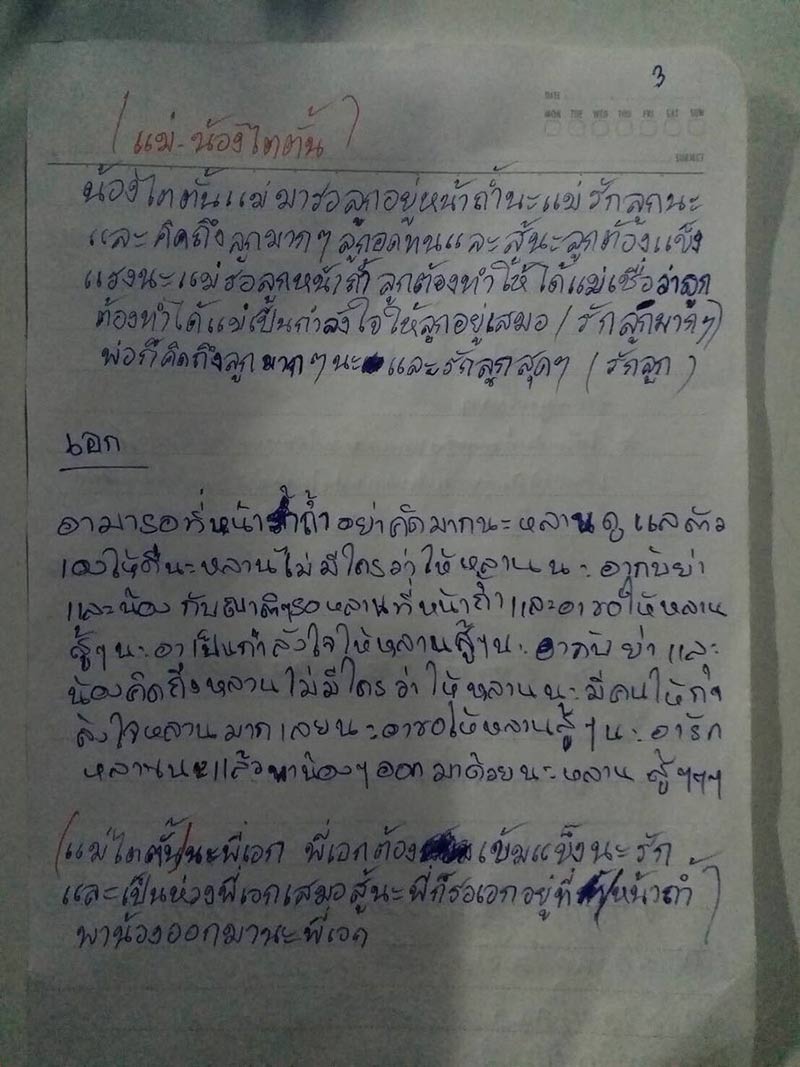 3
DATE
MON TUE WED THU FRI SAT SUN
SUBJECT
(แม่-น้องไตตั้น)
น้องไตตั้นแม่มารอลูกอยู่หน้าถ้ำนะแม่รักลูกนะ
และคิดถึงลูกมากๆลูกอดทนและสู้นะลูกต้องแข็ง
แรงนะแม่รอลูกหน้าถ้ำลูกต้องทำให้ได้แม่เชื่อว่าลูก
ต้องทำได้แม่เป็นกำลังใจให้ลูกอยู่เสมอ(รักลูกมากๆ)
พ่อก็คิดถึงลูกมากๆนะและรักลูกสุดๆ (รักลูก)
เอก
อามารอที่หน้าถ้ำอย่าคิดมากนะหลานดูแลตัว
เองให้ดีนะหลานไม่มีใครว่าให้หลานนะอากับย่า
และน้องกับญาติๆรอหลานที่หน้าถ้ำและอาขอให้หลาน
สู้ๆนะอาเป็นกำลังใจให้หลานสู้ๆนะอากับย่าและ
น้องคิดถึงหลานไม่มีใครว่าให้หลานนะมีคนให้กำ
ลังใจหลานมากเลยนะอาขอให้หลานสู้ๆนะอารัก
หลานนะแล้วพาน้องๆออกมาด้วยนะหลาน สู้ๆๆๆ
(แม่ไตตั้น)นะพี่เอก พี่เอกต้องเข้มแข็งนะรัก
และเป็นห่วงพี่เอกเสมอสู้นะพี่ก็รอเอกอยู่ที่หน้าถ้ำ)
พาน้องออกมานะพี่เอก